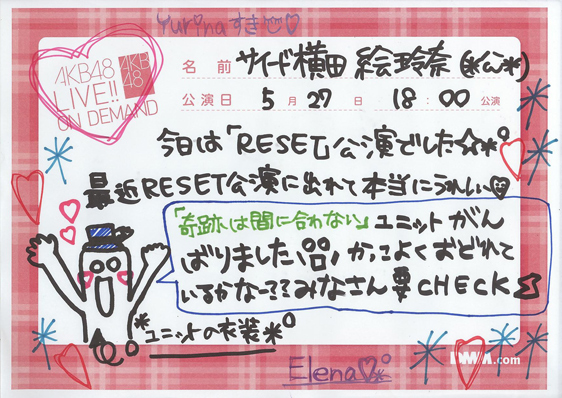 Yurinaすき♡
AKB48
LIVE!!
ON DEMAND
AKB
48
名前 サイード横田 絵玲奈(*'ω'*)
公演日 5月27日 18:00公演
今日は「RESET」公演でした☆*°
最近RESET公演に出れて本当にうれしい♡
「奇跡は間に合わない」ユニットがん
ばりました
かっこよくおどれて
いるかなーここみなさん要CHECK
*ユニットの衣装*°
DMM.com
Elena♡*